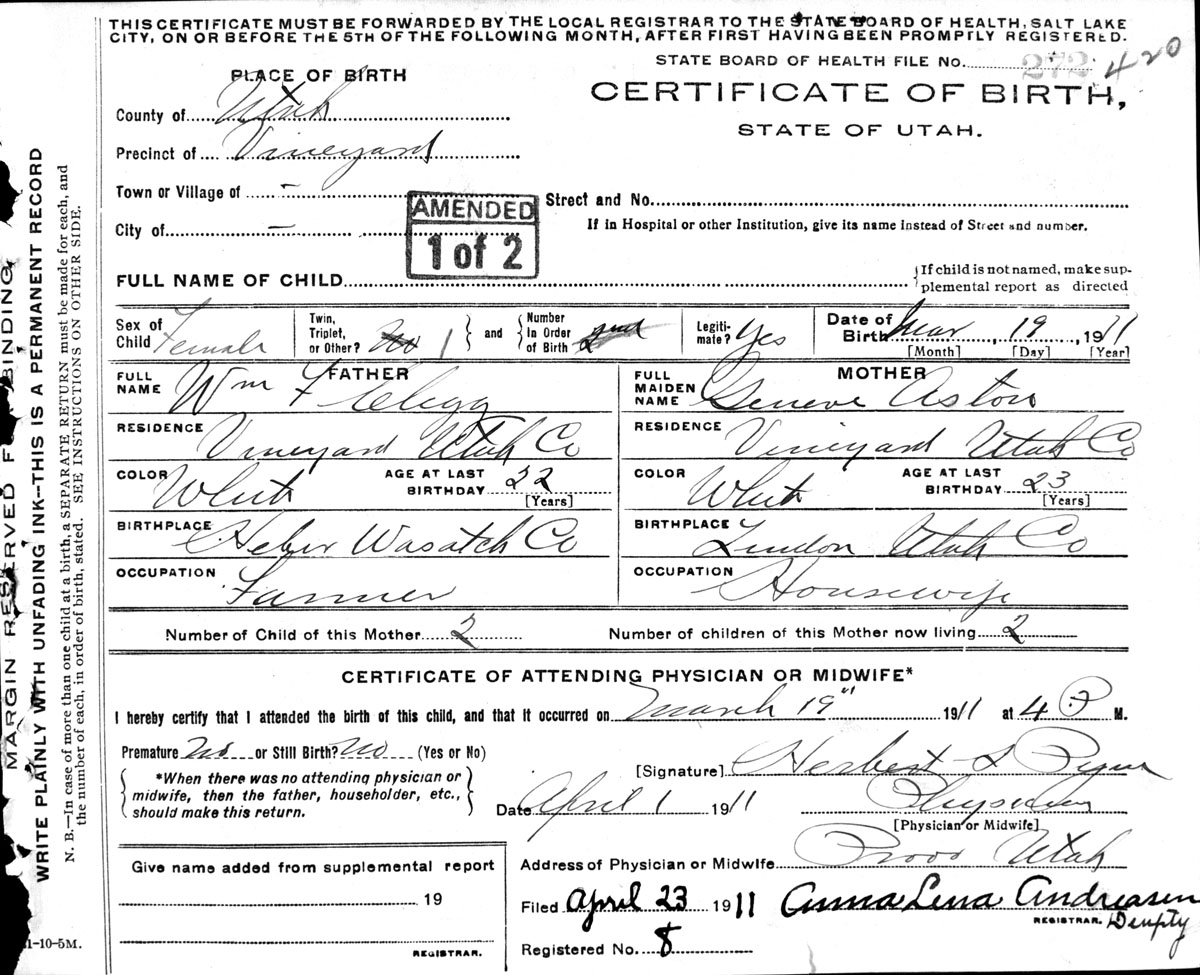 THIS CERTIFICATE MUST BE FORWARDED BY THE LOCAL REGISTRAR TO THE STATE BOARD OF HEALTH, SALT LAKE
CITY, ON OR BEFORE THE 5TH OF THE FOLLOWING MONTH, AFTER FIRST HAVING BEEN PROMPTLY REGISTERED.
STATE BOARD OF HEALTH FILE No. 272 420
PLACE OF BIRTH
CERTIFICATE OF BIRTH,
STATE OF UTAH.
County of Utah
Precinct of Vineyard
Town or Village of -
Street and No.
AMENDED
1 of 2
City of -
If in Hospital or other Institution, give its name instead of Street and number.
FULL NAME OF CHILD
{If child is not named, make sup-
plemental report as directed
Sex of Child Female
Twin, Triplet, or Other? No 1
and
Number In Order of Birth 2nd
Legiti-mate? Yes
Date of Birth Mar, 19, 1911
[Month] [Day] [Year]
FATHER
FULL NAME Wm F Clegg
MOTHER
FULL MAIDEN NAME Geneve Aston
RESIDENCE Vineyard Utah Co
RESIDENCE Vineyard Utah Co
COLOR White AGE AT LAST BIRTHDAY 22 [Years]
COLOR White AGE AT LAST BIRTHDAY 23 [Years]
BIRTHPLACE Heber Wasatch Co
BIRTHPLACE Lindon Utah Co
OCCUPATION Farmer
OCCUPATION Housewife
Number of Child of this Mother 2
Number of children of this Mother now living 2
CERTIFICATE OF ATTENDING PHYSICIAN OR MIDWIFE*
I hereby certify that I attended the birth of this child, and that it occurred on March 19" 1911 at 4 P M.
Premature No or Still Birth? No (Yes or No)
*When there was no attending physician or
midwife, then the father, householder, etc.,
should make this return.
[Signature] Herbert S Pyne
Date April 1 1911
Physician
[Physician or Midwife]
Address of Physician or Midwife Provo Utah
Give name added from supplemental report
19
REGISTRAR.
Filed April 23 1911 Anna Lena Andreasen
REGISTRAR. Deupty
Registered No. 8
1-10-5M.
MARGIN RESERVED BINDING
WRITE PLAINLY WITH UNFADING INK--THIS IS A PERMANENT RECORD
N. B.—In case of more than one child at a birth, a SEPARATE RETURN must be made for each, and
the number of each, in order of birth, stated. SEE INSTRUCTIONS ON OTHER SIDE.